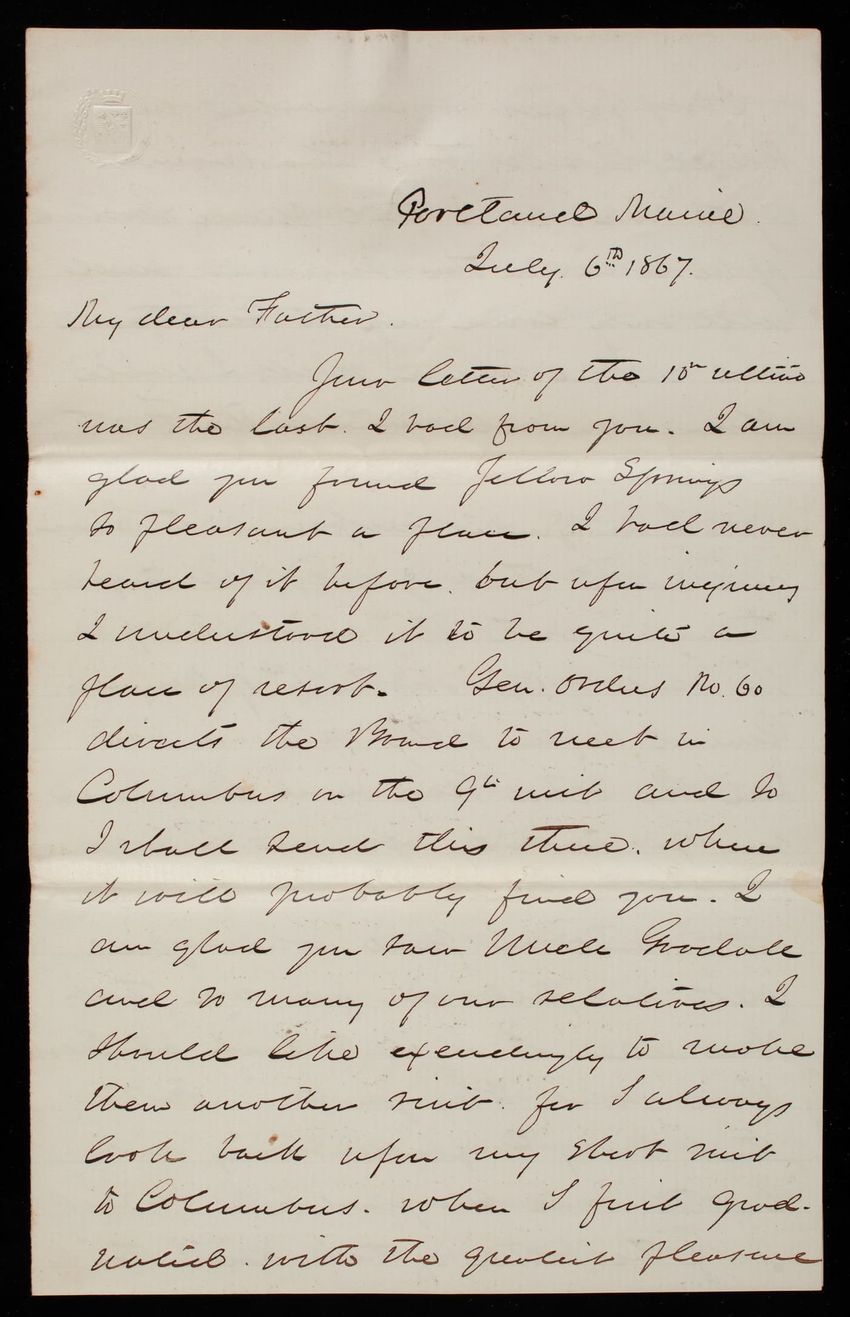 Portland Maine.
July. 6th 1867.
My dear Father.
Your letter of the 15th ultimo
was the last. I had from you. I am
glad you found Yellow Springs
so pleasant a place. I had never
heard of it before. but upon inquiry
I understood it to be quite a
place of resort. Gen. Orders No. 60
directs the Board to meet in
Columbus on the 9th inst and so
I shall send this there. where
it will probably find you. I
am glad you saw Uncle Goodale
and so many of our relatives. I
should like exceedingly to make
them another visit. for I always
look back upon my short visit
to Columbus. when I first grad-
uated. with the greatest pleasure